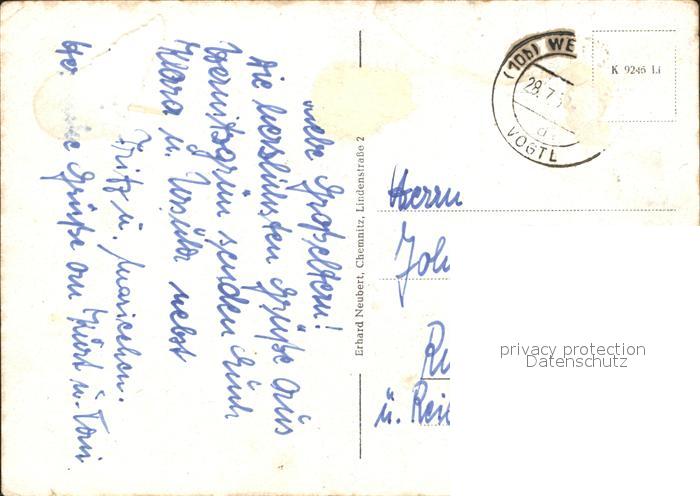 Liebe Großeltern!
Die herzlichsten Grüße aus
Wernitzgrün senden Euch
Klara u. Ursula nebst
Fritz u. Mariechen.
Grüße an Kurt u. Toni
Erhard Neubert, Chemnitz, Lindenstraße 2
(10b) WE
28.7.5
d
VOGTL
K 9246 Li
Herrn
Joh
Re
u. Rei
privacy protection
Datenschutz